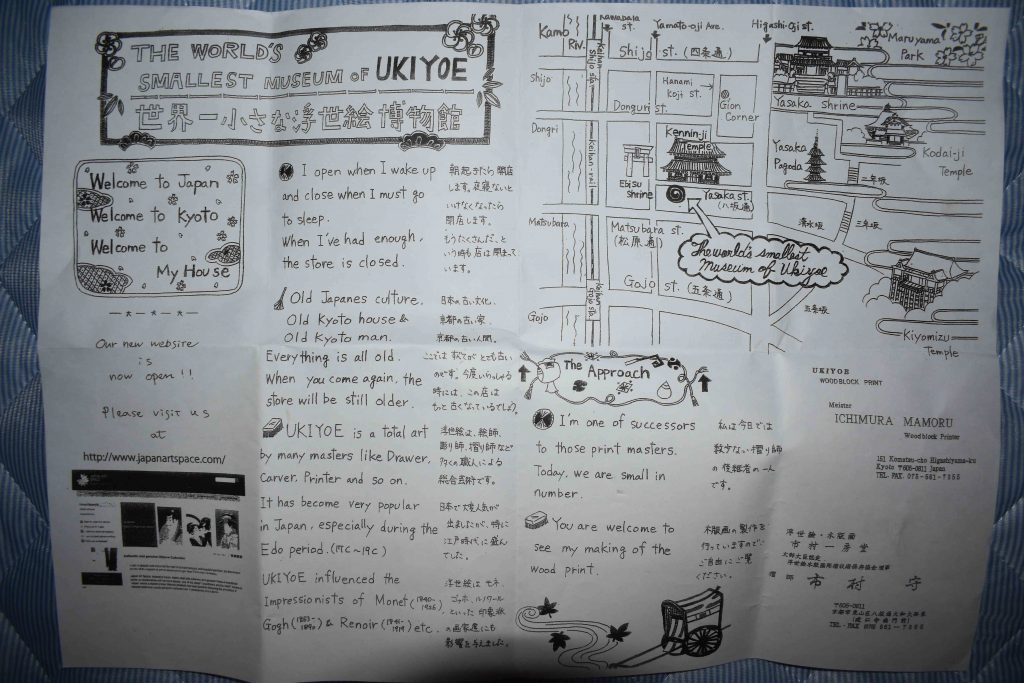 THE WORLD'S
SMALLEST MUSEUM OF UKIYOE
世界一小さな浮世絵博物館
Welcome to Japan
Welcome to Kyoto
Welcome to
My House
Our new website
is
now open!!
Please visit us
at
http://www.japanartspace.com/
I open when I wake up
and close when I must go
to sleep.
When I've had enough,
the store is closed.
朝起きたら開店
します。夜寝ないと
いけなくなったら
閉店します。
もうたくさんだ、と
いう時も店は閉まって
います。
Old Japanes culture,
Old Kyoto house &
Old Kyoto man.
日本の古い文化、
京都の古い家、
京都の古い人間。
Everything is all old.
When you come again, the
store will be still older.
ここではすべてがとても古い
のです。今度いらっしゃる
時には、この店は
もっと古くなっているでしょう。
UKIYOE is a total art
by many masters like Drawer,
Carver, Printer and so on.
浮世絵は、絵師、
彫り師、摺り師など
多くの職人による
総合芸術です。
It has become very popular
in Japan, especially during the
Edo period. (17C~19C)
日本で大変人気が
出ましたが、特に
江戸時代に盛ん
でした。
UKIYOE influenced the
Impressionists of Monet (1840-1926),
Gogh (1853-1890) & Renoir (1841-1919) etc.
浮世絵はモネ、
ゴッホ、ルノワール
といった印象派
の画家達にも
影響を与えました。
Kamo
Riv.
Kawabata
st.
Yamato-oji Ave.
Higashi-Oji st.
Keihan
Shijo sta.
Shijo st. (四条通)
Maruyama
Park
Shijo
Hanami
Koji st.
Yasaka Shrine
Donguri st.
Gion
Corner
Dongri
Kennin-ji
Temple
Keihan-rail
Yasaka
Pagoda
Kodai-ji
Temple
Ebisu
shrine
二年坂
Yasaka st.
(八坂通)
Matsubara
Matsubara st.
(松原通)
清水坂
三年坂
The world's smallest
Museum of Ukiyoe
Gojo st. (五条通)
Keihan
Gojo sta.
Gojo
五条坂
Kiyomizu
Temple
The Approach
I'm one of successors
to those print masters.
Today, we are small in
number.
私は今日では
数少ない摺り師
の後継者の一人
です。
You are welcome to
see my making of the
wood print.
木版画の製作を
行っていますので、
ご自由にご覧
ください。
UKIYOE
WOODBLOCK PRINT
Meister
ICHIMURA MAMORU
Woodblock Printer
151 Komatsu-cho Higashiyama-ku
Kyoto 〒605-0811 Japan
TEL.・FAX. 075-561-7955
浮世絵・木版画
市村一房堂
摺師 市村 守
〒605-0811
TEL.・FAX 075 561-7955